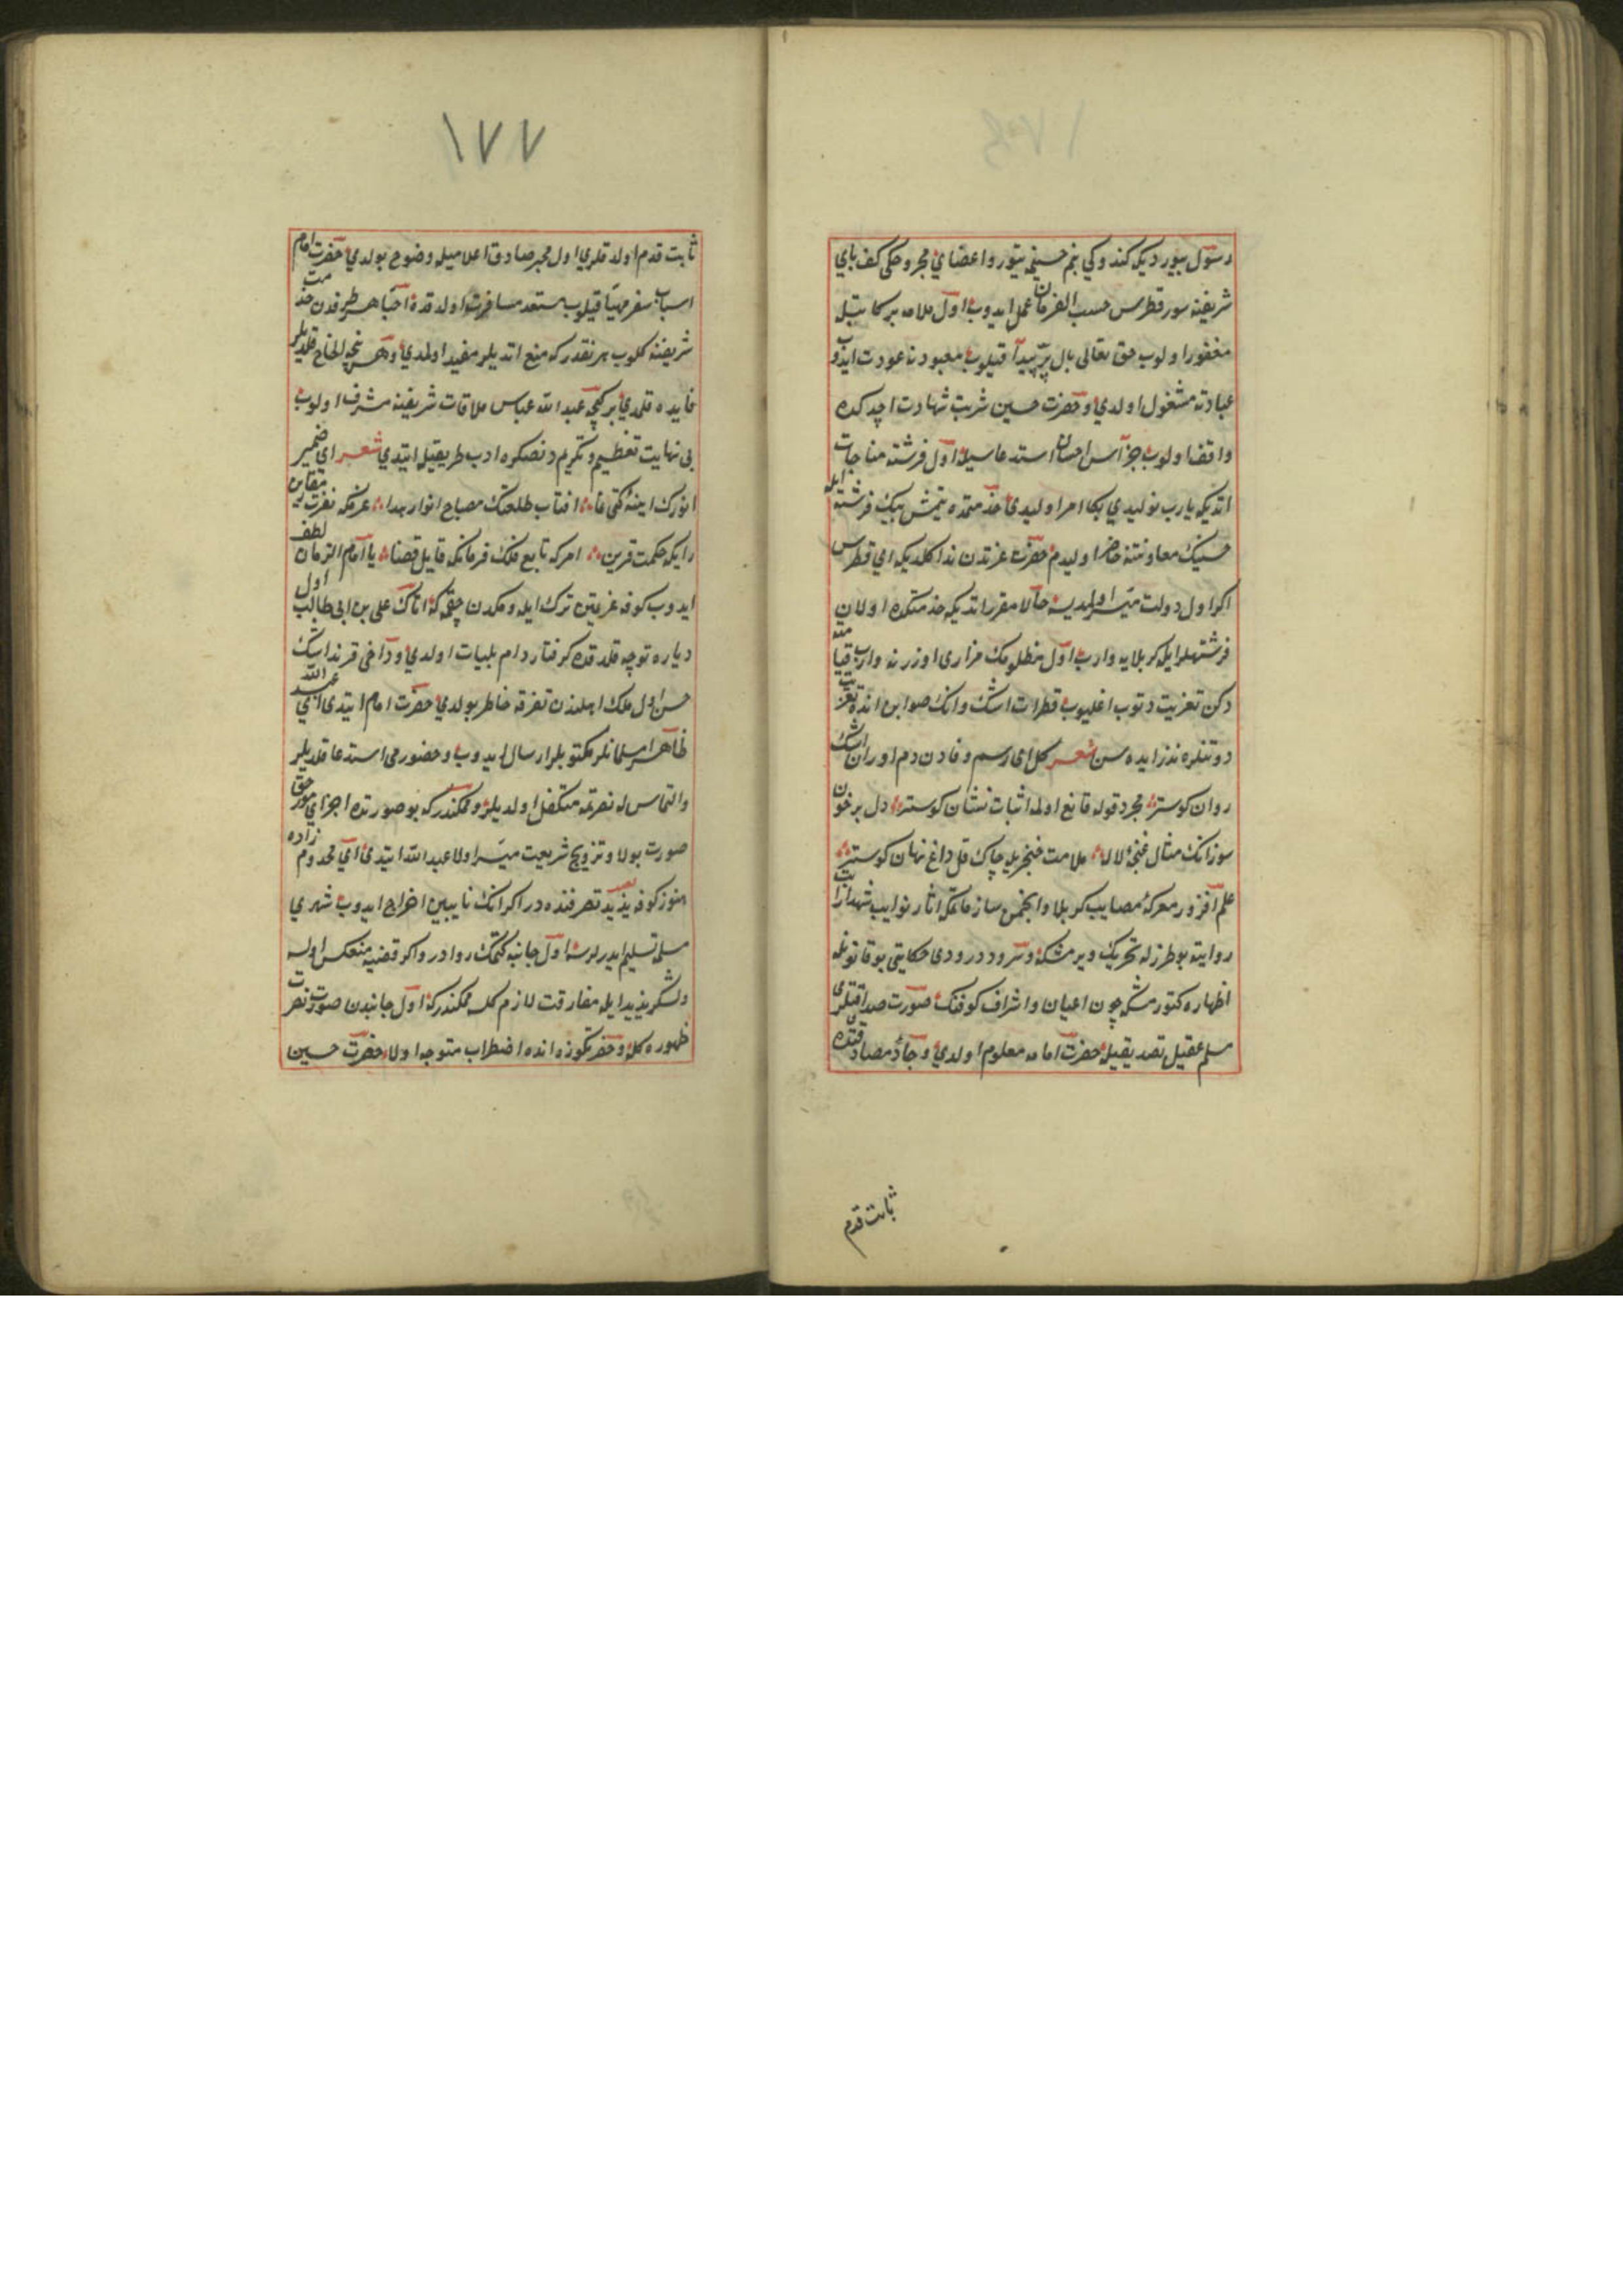 رسول بيورديكه كندوكي بنم حسينمه يتور و اعضاي مجروحكي كف پاي
شريفنه سور قطرس حسب الفرمان عمل ايدوب اول ملامه بركاتيله
مغفور اولوب حق تعالى بال پر پيدا قيلوب معبودنه عودت ايدوب
عبادته مشغول اولدي و حضرت حسين شربت شهادت ايچدكده
واقف اولوب جز آسن احسان استدعاسيله اول فرشته مناجات
اتديكه يارب نوليدي بكا امر اوليدي خدمتمده يتمش بيك فرشته ايله
حسينك معاونتنه حاضر اوليدم حضرت عزتدن ندا كلديكه اي قطرس
اكر اول دولت ميسر اولمديسه حالا مقرر اتديكه خدمتكده اولان
فرشتهلر ايله كربلايه وارب اول مظلومك مزاري اوزرنه وارب قيامته
دكن تعزيت دتوب اغليوب قطرات اشك وانك صوابن انده تعزيت
دوتنلره نذر ايده سن شعر كل اي رسم وفادن دم اوران اشك
روان كوستر مجرد قوله قانع اولمه اثبات نشان كوستر دل پرخون
سوزانك مثال غنچهٔ لاله ملامت خنجريله چاك قل داغ نهان كوستر
علم افزور معركهٔ مصايب كربلا وانجمن ساز ماتمكه اثار نوايب شهدا رايت
روايته بو طرزله تحريك ويرمشكه و سرود درودي حكايتي بو قانونله
اظهاره كتورمشكه چون اعيان واشراف كوفنك صورت صداقتلري
مسلم عقيل تصديقيله حضرت امامه معلوم اولدي و جادهٔ مصادقتده
ثابت قدم
١٧٧
ثابت قدم اولدقلري اول مخبر صادق اعلاميله وضوح بولدي حضرت امام
اسباب سفر مهيا قيلوب مستعد مسافرت اولدقده احبا هر طرفدن خدمت
شريفنه كلوب هر نقدر كه منع اتديلر مفيد اولمدي و هر نچه الحاح قلديلر
فايده قلمدي بر كيجه عبد الله عباس ملاقات شريفنه مشرف اولوب
بي نهايت تعظيم و تكريمدنصكره ادب طريقيله ايتدي شعر اي ضمير
انورك اينهٔ كتي نما افتاب طلعتك مصباح انوار هدا عزمكه نصرت مقارن
رايكه حكمت قرين امركه تابع فلك فرمانكه قايل قضا يا امام الزمان لطف
ايدوب كوفه عزيمتين ترك ايله ومكدن چقمه كه اتاك علي بن ابي طالب اول
دياره توجه قلدقده كرفتار دام بليات اولدي و داخي قرنداشك
حسن اول ملك اهلندن تفرقه خاطر بولدي حضرت امام ايتدي اي عبد الله
ظاهر مسلمانلر مكتوبلر ارسال ايدوب و حضورمي استدعا قلديلر
والتماس له نصرتمه متكفل اولديلر و ممكندر كه بو صورتده اجراي امور حق
صورت بولا و ترويج شريعت ميسر اولا عبد الله ايتدي اي مخدوم زاده
هنوز كوفه يزيد تصرفنده در اكر انك نايبين اخراج ايدوب شهري
مسلمه تسليم ايدرلرسه اول جانبه كتمك روادر و اكر قضيه منعكس اولسه
و لشكر يزيد ايله مفارقت لازم كلسه ممكندر كه اول جانبدن صورت نصرت
ظهوره كلمه و حضرتكوز انده اضطراب متوجه اولا حضرت حسين